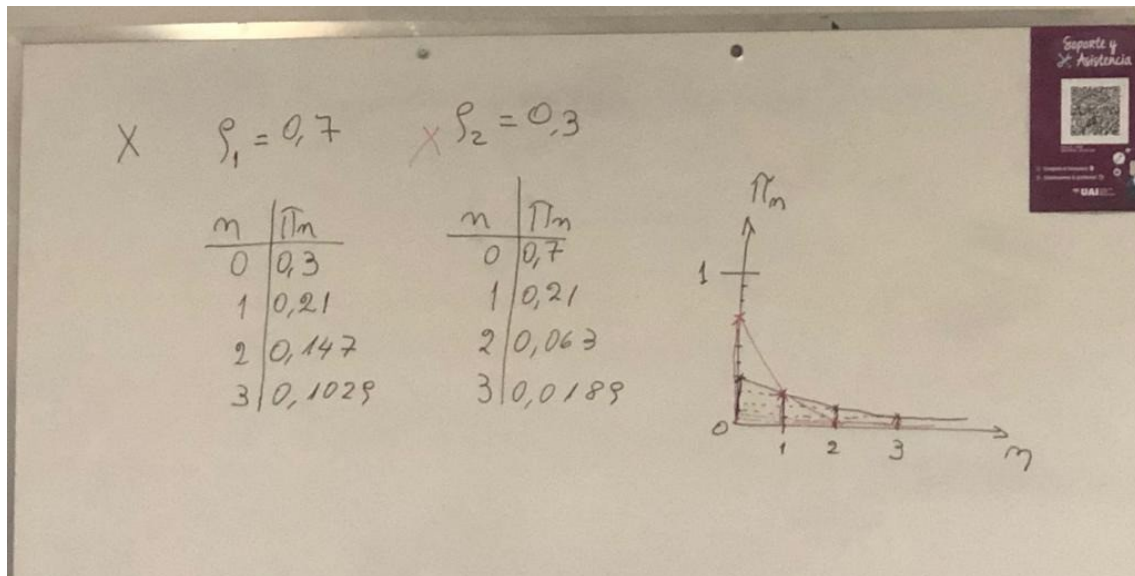 Soporte y
Asistencia
UAI
X ρ₁ = 0,7 X ρ₂ = 0,3
n | πn
0 | 0,3
1 | 0,21
2 | 0,147
3 | 0,1029
n | πn
0 | 0,7
1 | 0,21
2 | 0,063
3 | 0,0189
πn
1
0 1 2 3
n